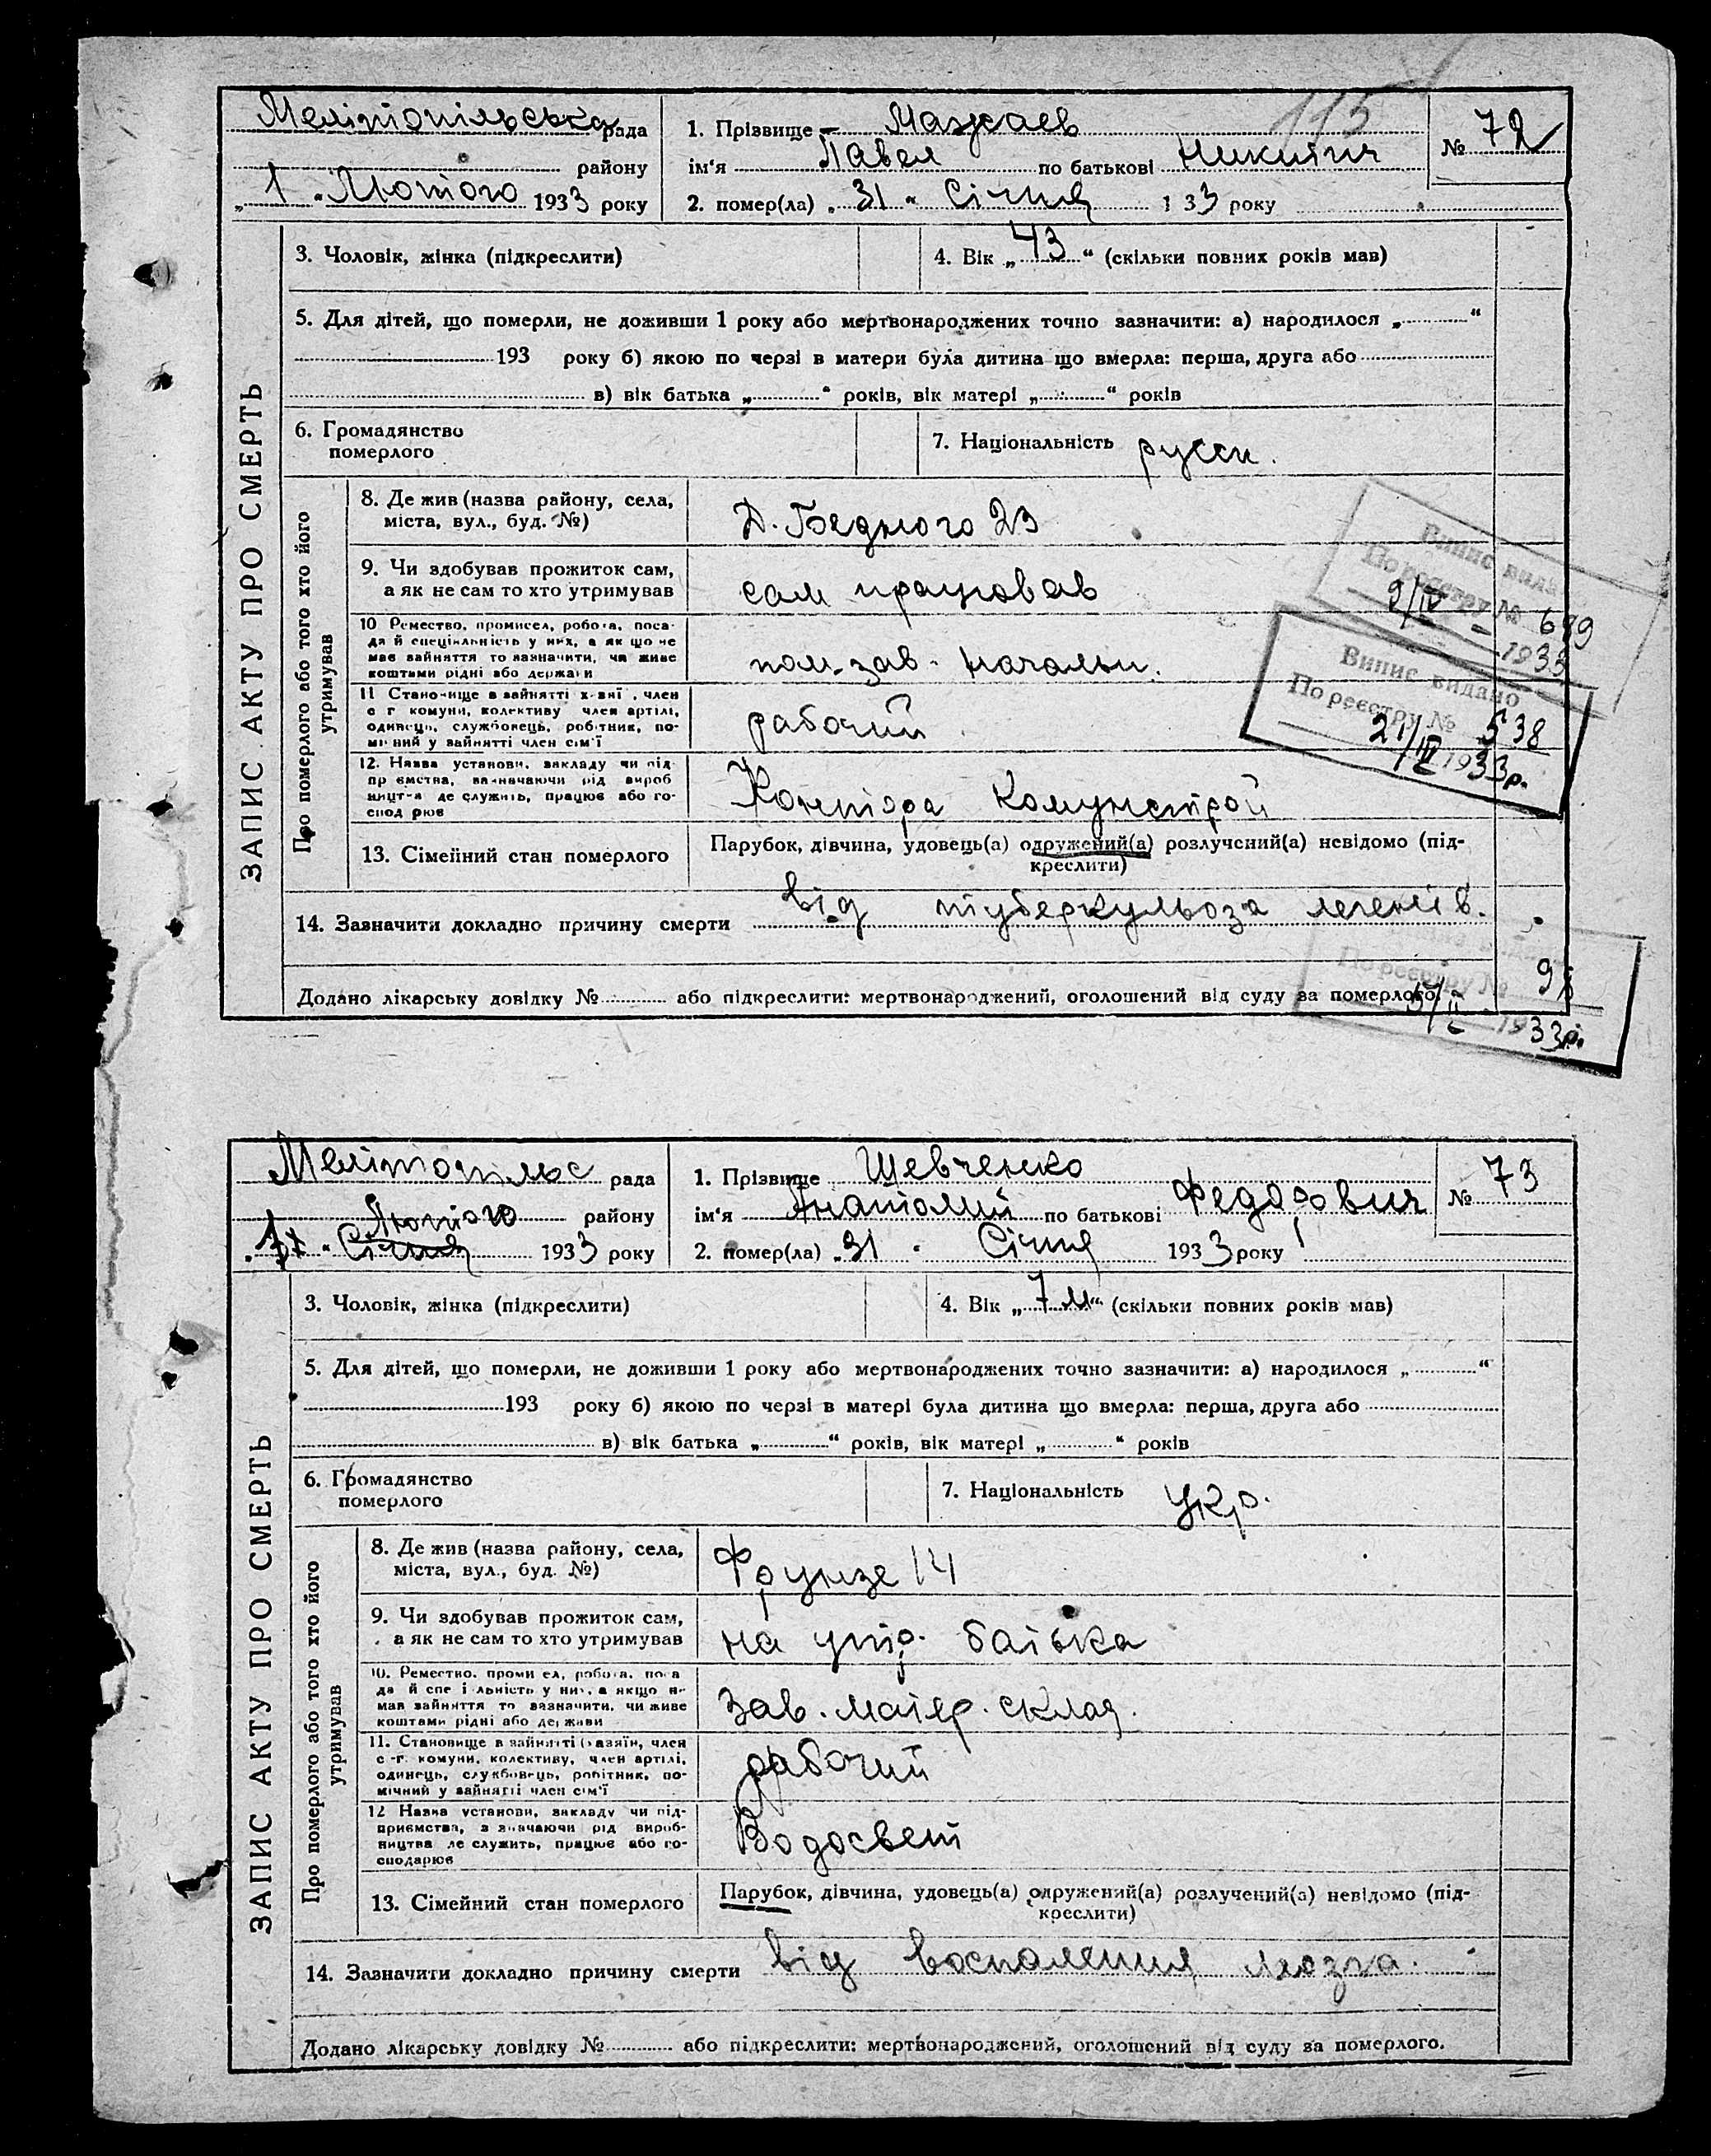 Мелітопільська рада
району
„1“ Лютого 1933 року
1. Прізвище Мажаев
115
ім‘я Павел по батькові Никитич
№ 72
2. помер(ла) „31“ Січня 1 33 року
ЗАПИС АКТУ ПРО СМЕРТЬ
3. Чоловік, жінка (підкреслити)
4. Вік „43“ (скільки повних років мав)
5. Для дітей, що померли, не доживши 1 року або мертвонароджених точно зазначити: а) народилося „ “
193 року б) якою по черзі в матери була дитина що вмерла: перша, друга або
в) вік батька „ “ років, вік матері „ “ років
6. Громадянство
померлого
7. Національність русск.
Про померлого або того хто його
утримував
8. Де жив (назва району, села,
міста, вул., буд. №)
Д. Бедного 23
9. Чи здобував прожиток сам,
а як не сам то хто утримував
сам працював
10 Ремество, промисел, робота, поса-
да й спеціяльність у них, а як що не
мав зайняття то зазначити, чи живе
коштами рідні або держави
пом. зав. начальн.
11 Становище в зайнятті х-зяї , член
с г комуни, колективу член артілі,
одинець, службовець, робітник, по-
мічний у зайнятті член сім‘ї
рабочий
12. Назва установи, закладу чи під-
пр ємства, зазначаючи рід вироб
ництва де служить, працює або го-
спод рює
Контора Комунстрой
13. Сімейний стан померлого
Парубок, дівчина, удовець(а) одружений(а) розлучений(а) невідомо (під-
креслити)
14. Зазначити докладно причину смерти від туберкульоза легенів.
Додано лікарську довідку № або підкреслити: мертвонароджений, оголошений від суду за померлого.
Випис видано
По реєстру № 689
9/IV 1933
Випис видано
По реєстру № 538
21/III 1933р.
По реєстру №
1933р.
Мелітопільс рада
Лютого району
„1“ Січня 1933 року
1. Прізвище Шевченко
ім‘я Анатолий по батькові Федорович
№ 73
2. помер(ла) „31“ Січня 1933 року
ЗАПИС АКТУ ПРО СМЕРТЬ
3. Чоловік, жінка (підкреслити)
4. Вік „7 м“ (скільки повних років мав)
5. Для дітей, що померли, не доживши 1 року або мертвонароджених точно зазначити: а) народилося „ “
193 року б) якою по черзі в матері була дитина що вмерла: перша, друга або
в) вік батька „ “ років, вік матері „ “ років
6. Громадянство
померлого
7. Національність укр.
Про померлого або того хто його
утримував
8. Де жив (назва району, села,
міста, вул., буд. №)
Фрунзе 14
9. Чи здобував прожиток сам,
а як не сам то хто утримував
на утр. батька
10. Ремество, проми ел, робота, поса
да й спе і льність у них, а якщо не
мав зайняття то зазначити, чи живе
коштами рідні або держави
зав. матер. склад.
11. Становище в зайнятті (хазяїн, член
с -г. комуни, колективу, член артілі,
одинець, службовець, робітник, по-
мічний у зайнятті член сім‘ї
рабочий
12 Назва установи, закладу чи під-
приємства, зазначаючи рід вироб-
ництва де служить, працює або го-
сподарює
Водосвет
13. Сімейний стан померлого
Парубок, дівчина, удовець(а) одружений(а) розлучений(а) невідомо (під-
креслити)
14. Зазначити докладно причину смерти від воспаления мозга.
Додано лікарську довідку № або підкреслити: мертвонароджений, оголошений від суду за померлого.